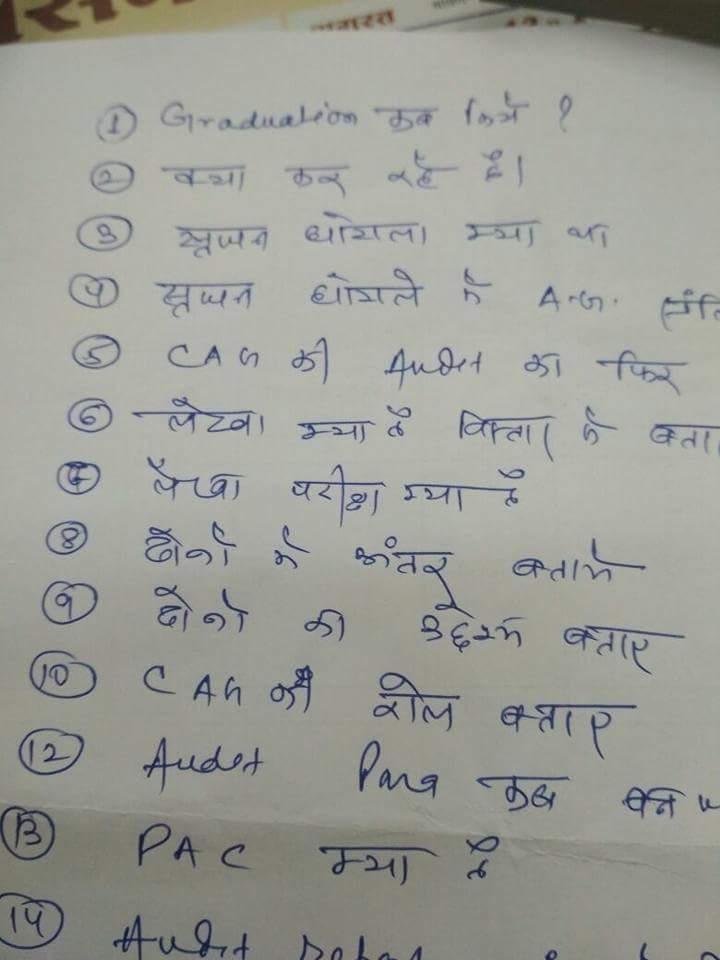 जागरत
① Graduation कब किये ?
② क्या कर रहे है।
③ सृजन घोटाला क्या था
④ सृजन घोटाले मे A.G.
⑤ CAG की Audit का फिर
⑥ लेखा क्या है विस्तार मे बता
⑦ लेखा परीक्षा क्या है
⑧ दोनो मे अंतर बताये
⑨ दोनो की उद्देश्य बताए
⑩ CAG की रोल बताए
⑫ Audit Para कब
⑬ PAC क्या है
⑭ Audit